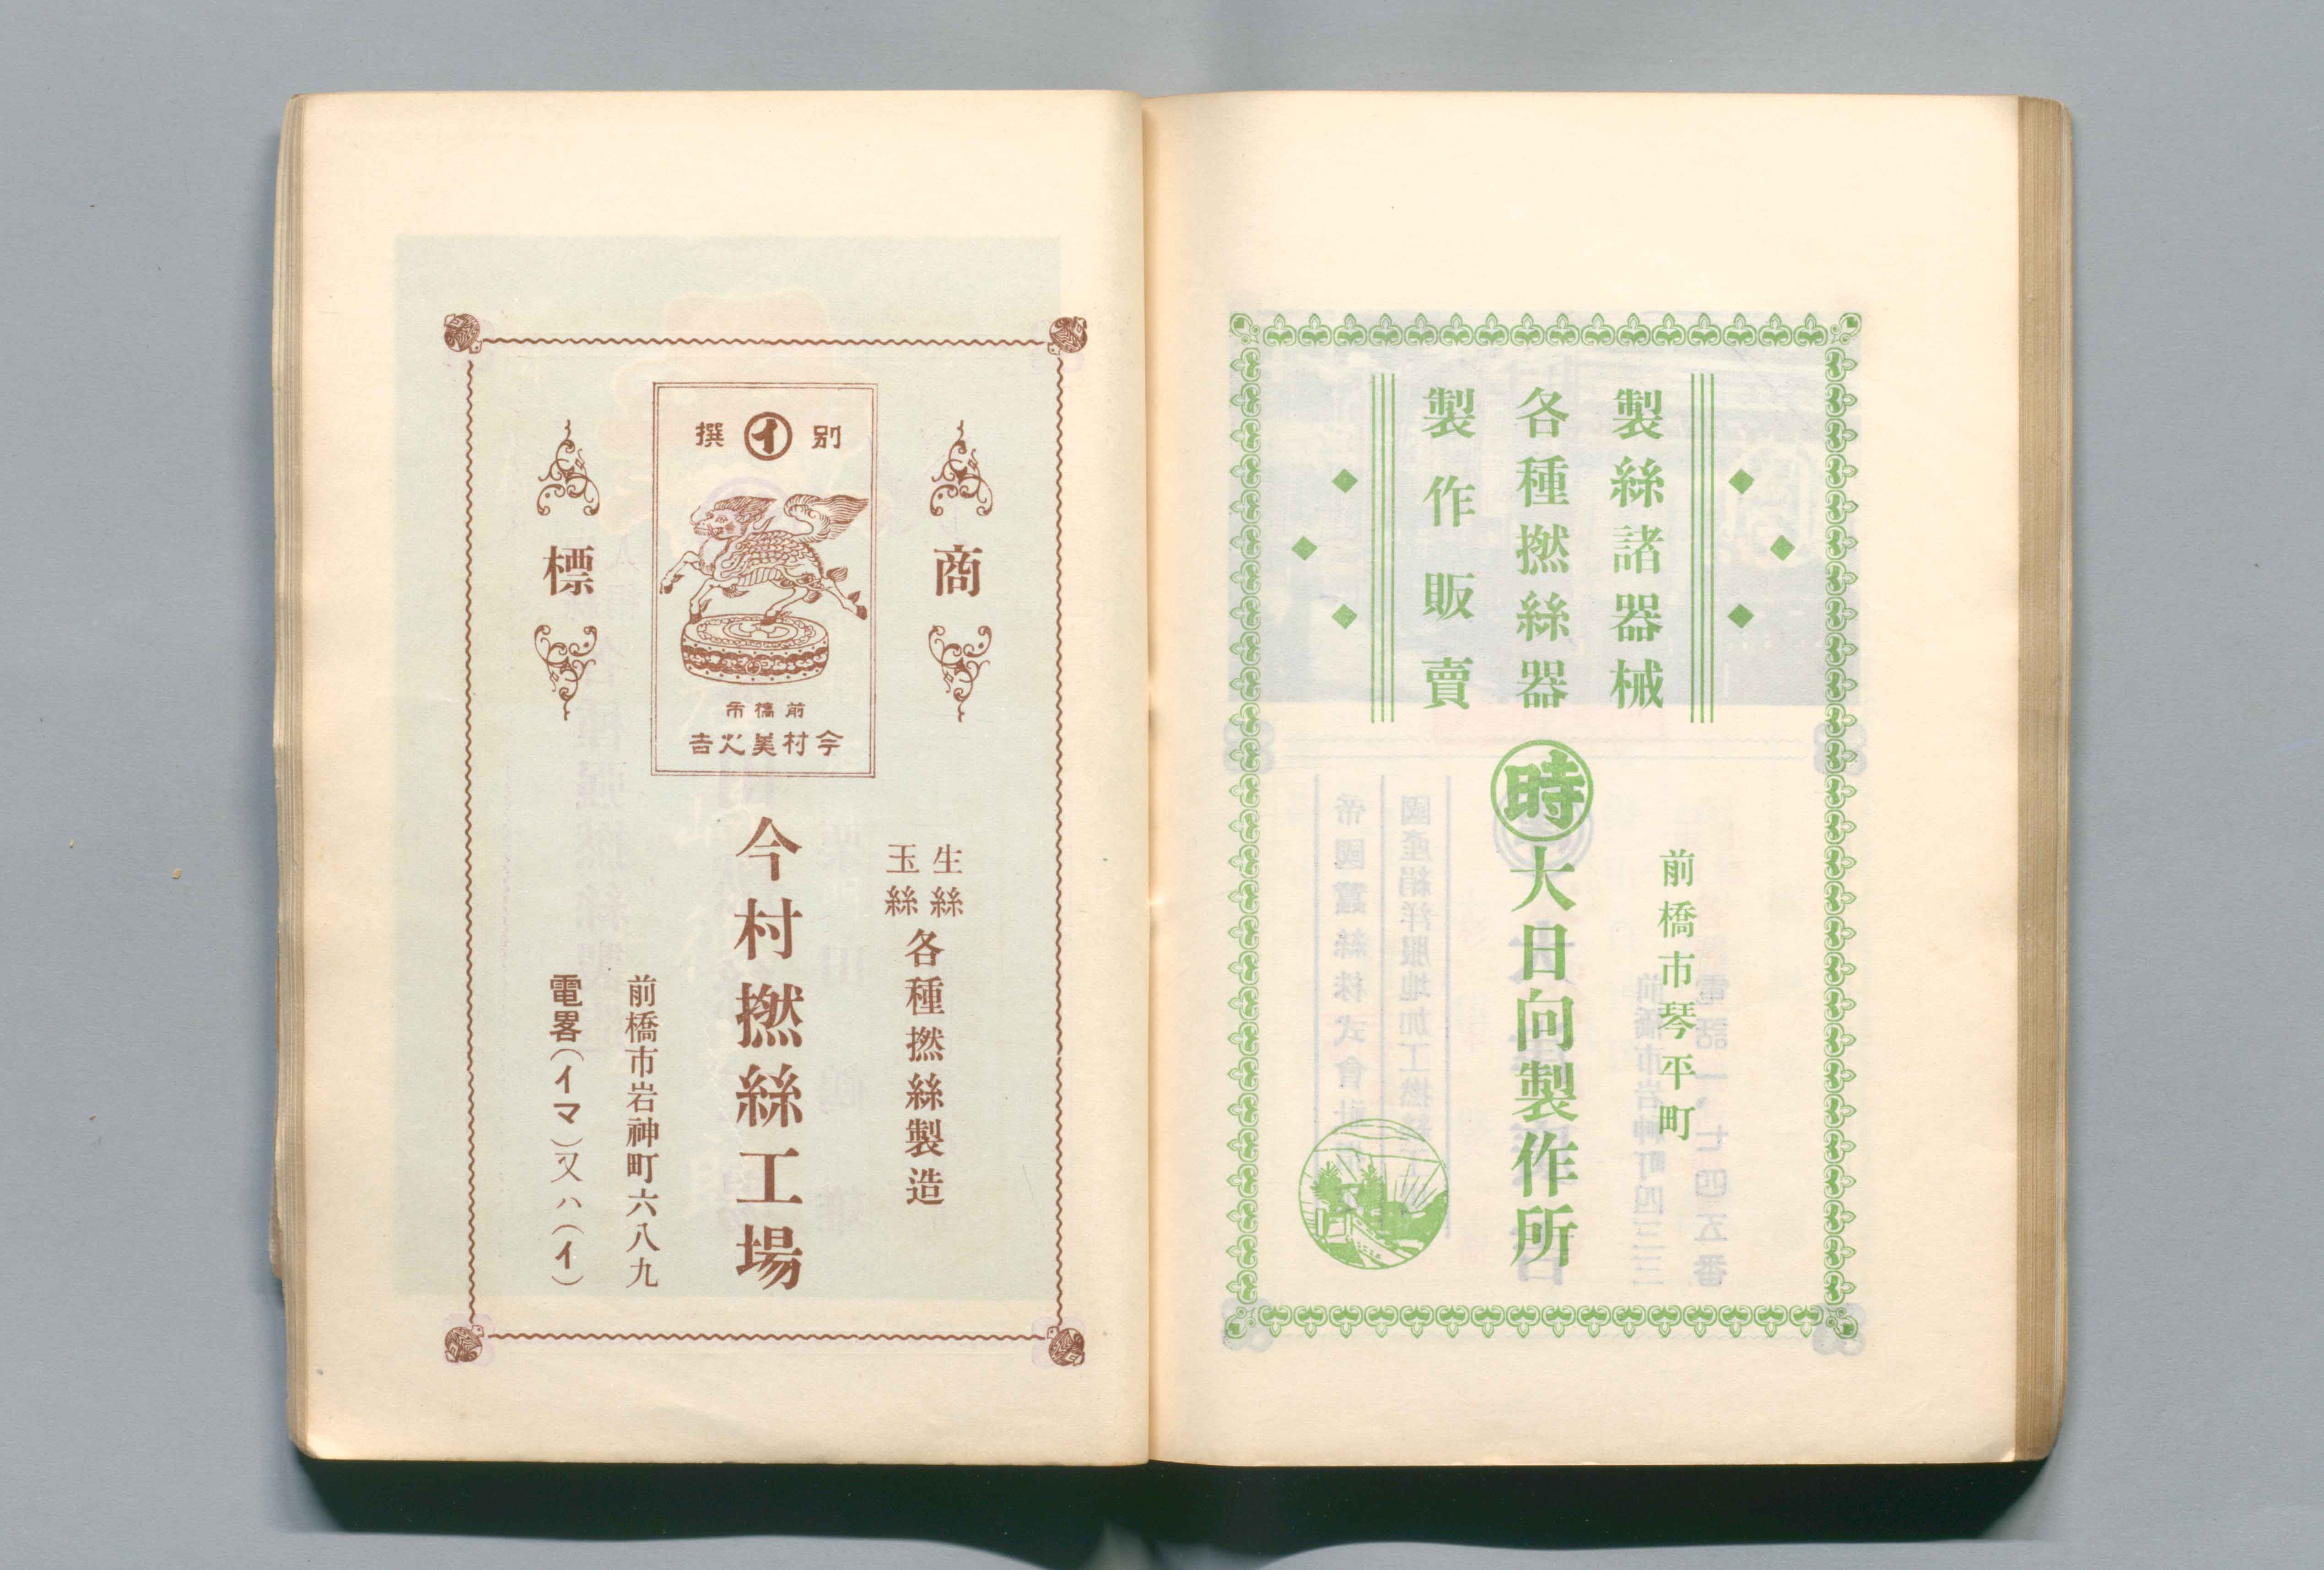 製絲諸器械
各種撚絲器
製作販賣
前橋市琴平町
時
大日向製作所
商標
別イ撰
前橋市
今村美火吉
生絲
玉絲
各種撚絲製造
今村撚絲工場
前橋市岩神町六八九
電畧(イマ)又ハ(イ)